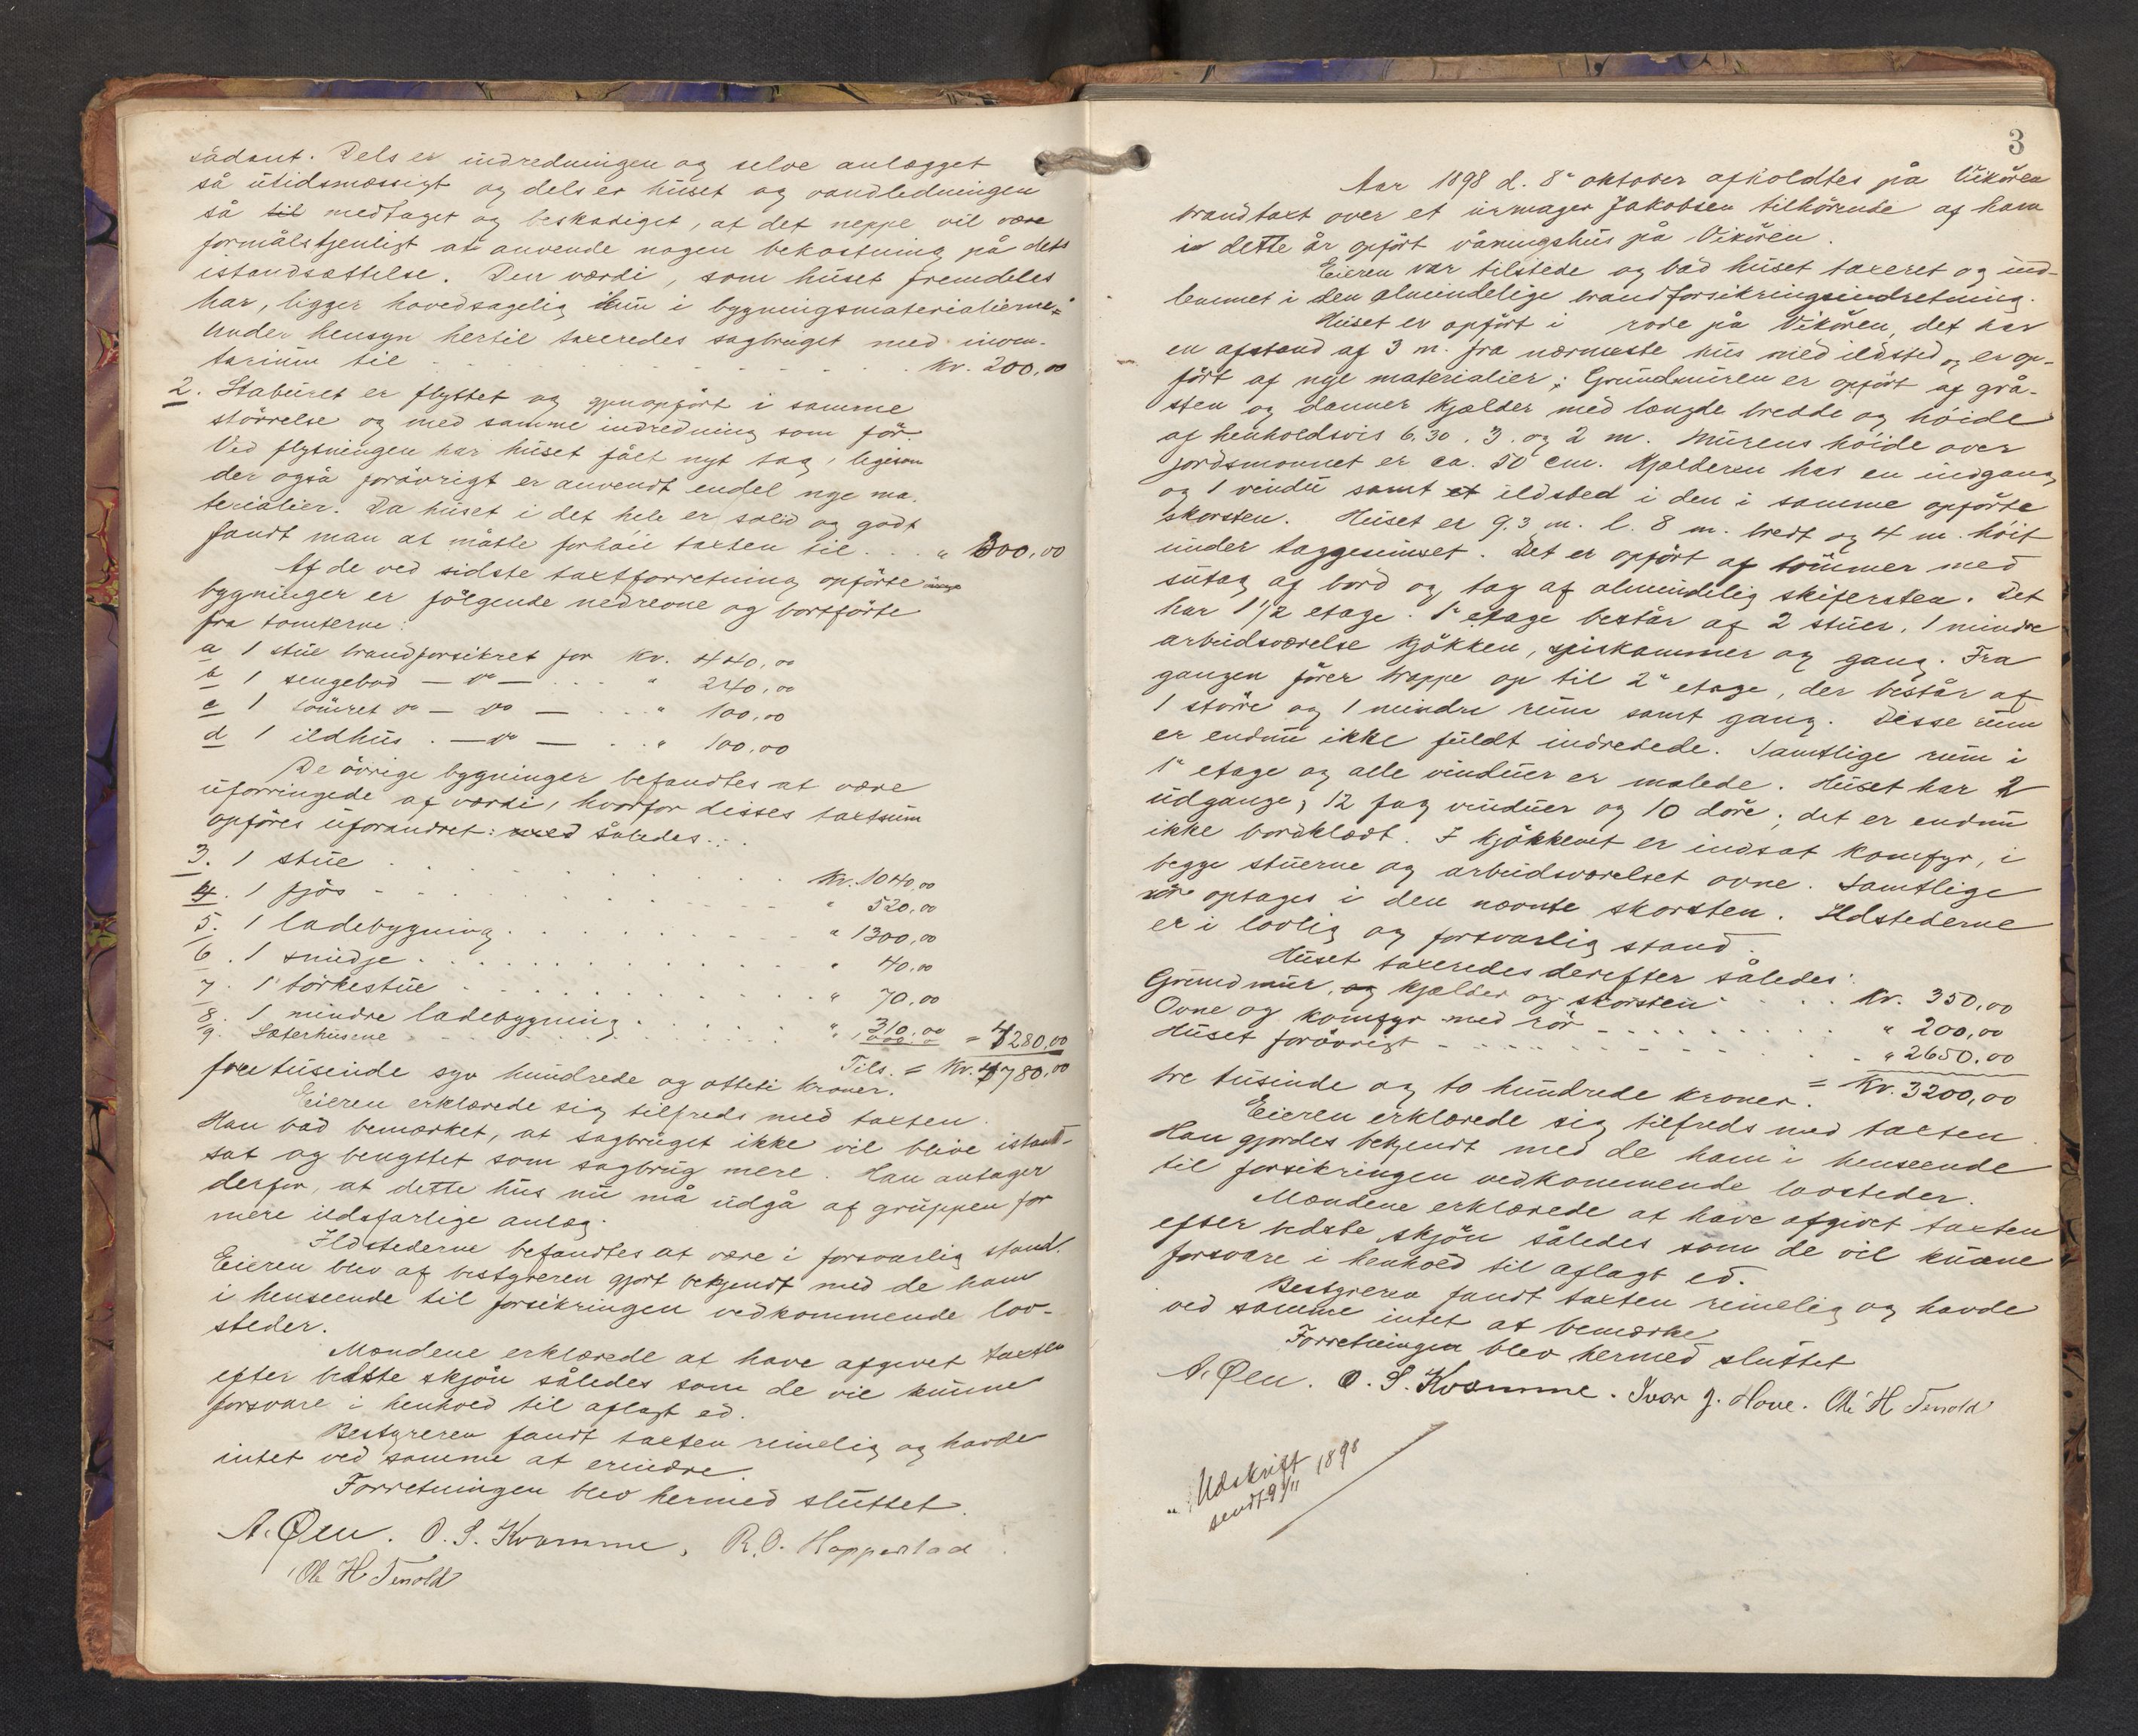 sådant. Dels er indredningen og selve anlægget
så utidsmæssigt og dels er huset og vandledningen
så til medtaget og beskadiget, at det neppe vil være
formålstjenligt at anvende nogen bekostning på dets
istandsættelse. Den værdi, som huset fremdeles
har, ligger hovedsagelig kun i bygningsmaterialierne.
Under hensyn hertil taxeredes sagbruget med inven-
tarium til . . . . . . kr. 200,00
2. Staburet er flyttet og gjenopført i samme
størrelse og med samme indredning som før.
Ved flytningen har huset fået nyt tag, ligesom
der også forøvrigt er anvendt endel nye ma-
terialier. Da huset i det hele er solid og godt,
fandt man at måtte forhøie taxten til . . . " 300,00
Af de ved sidste taxtforretning opførte
bygninger er følgende nedrevne og bortførte
fra tomterne:
a 1 stue brandforsikret for kr. 440,00
b 1 sengebod — do — . . . " 240,00
c 1 do — do — . . . " 100,00
d 1 ildhus . — do — . . . " 100,00
De øvrige bygninger befandtes at være
uforringede af værdi, hvorfor disses taxtsum
opføres uforandret: således . . .
3. 1 stue . . . . . . kr. 1040,00
4. 1 fjøs . . . . . . " 520,00
5. 1 ladebygning . . . . . . " 1300,00
6. 1 smidje . . . . . . " 40,00
7. 1 tørkestue . . . . . . " 70,00
8. 1 mindre ladebygning . . . . . . " 310,00
9. Sæterhusene . . . . . . = 4280,00
Tils. = Kr. 4780,00
fire tusinde syv hundrede og otteti kroner.
Eieren erklærede sig tilfreds med taxten.
Han bad bemærket, at sagbruget ikke vil blive istand-
sat og benyttet som sagbrug mere. Han antager
derfor, at dette hus nu må udgå af gruppen for
mere ildsfarlige anlæg.
Ildstederne befandtes at være i forsvarlig stand.
Eieren blev af bestyreren gjort bekjendt med de ham
i henseende til forsikringen vedkommende lov-
steder.
Mændene erklærede at have afgivet taxten
efter bedste skjøn således som de vil kunne
forsvare i henhold til aflagt ed.
Bestyreren fandt taxten rimelig og havde
intet ved samme at erindre.
Forretningen blev hermed sluttet.
A. Øen. O. S. Kvamme, R. O. Hopperstad.
Ole H. Tenold
3
Aar 1898 d. 8de oktober afholdtes på Vikøren
brandtaxt over et urmager Jakobsen tilhørende af ham
i dette år opført våningshus på Vikøren.
Eieren var tilstede og bad huset taxeret og ind-
lemmet i den almindelige brandforsikringsindretning.
Huset er opført i rode på Vikøren, det har
en afstand af 3 m. fra nærmeste hus med ildsted og er op-
ført af nye materialier; Grundmuren er opført af grå-
sten og danner kjælder med længde bredde og høide
af henholdsvis 6,30. 3. og 2 m. Murens høide over
jordsmonnet er ca. 50 cm. Kjælderen har en indgang
og 1 vindu samt et ildsted i den i samme opførte
skorsten. Huset er 9.3 m. l. 8 m. bredt og 4 m. høit
under taggesimset. Det er opført af tømmer med
sutag af bord og tag af almindelig skifersten. Det
har 1 1/2 etage. 1ste etage består af 2 stuer, 1 mindre
arbeidsværelse kjøkken, spiskammer og gang. Fra
gangen fører trappe op til 2den etage, der består af
1 større og 1 mindre rum samt gang. Disse rum
er endnu ikke fuldt indredede. Samtlige rum i
1ste etage og alle vinduer er malede. Huset har 2
udgange, 12 fag vinduer og 10 døre; det er endnu
ikke bordklædt. I kjøkkenet er indsat komfyr, i
begge stuerne og arbeidsværelset ovne. Samtlige
rør optages i den nævnte skorsten. Ildstederne
er i lovlig og forsvarlig stand.
Huset taxeredes derefter således:
Grundmur, og kjælder og skorsten . . . Kr. 350,00
Ovne og komfyr med rør . . . . . . " 200,00
Huset forøvrigt . . . . . . " 2650,00
= Kr. 3200,00
tre tusinde og to hundrede kroner.
Eieren erklærede sig tilfreds med taxten.
Han gjordes bekjendt med de ham i henseende
til forsikringen vedkommende lovsteder.
Mændene erklærede at have afgivet taxten
efter bedste skjøn således som de vil kunne
forsvare i henhold til aflagt ed.
Bestyreren fandt taxten rimelig og havde
ved samme intet at bemærke.
Forretningen blev hermed sluttet
A. Øen. O. S. Kvamme. Ivar J. Hove. Ole H Tenold
Udskrift
sendt 9/11 1898